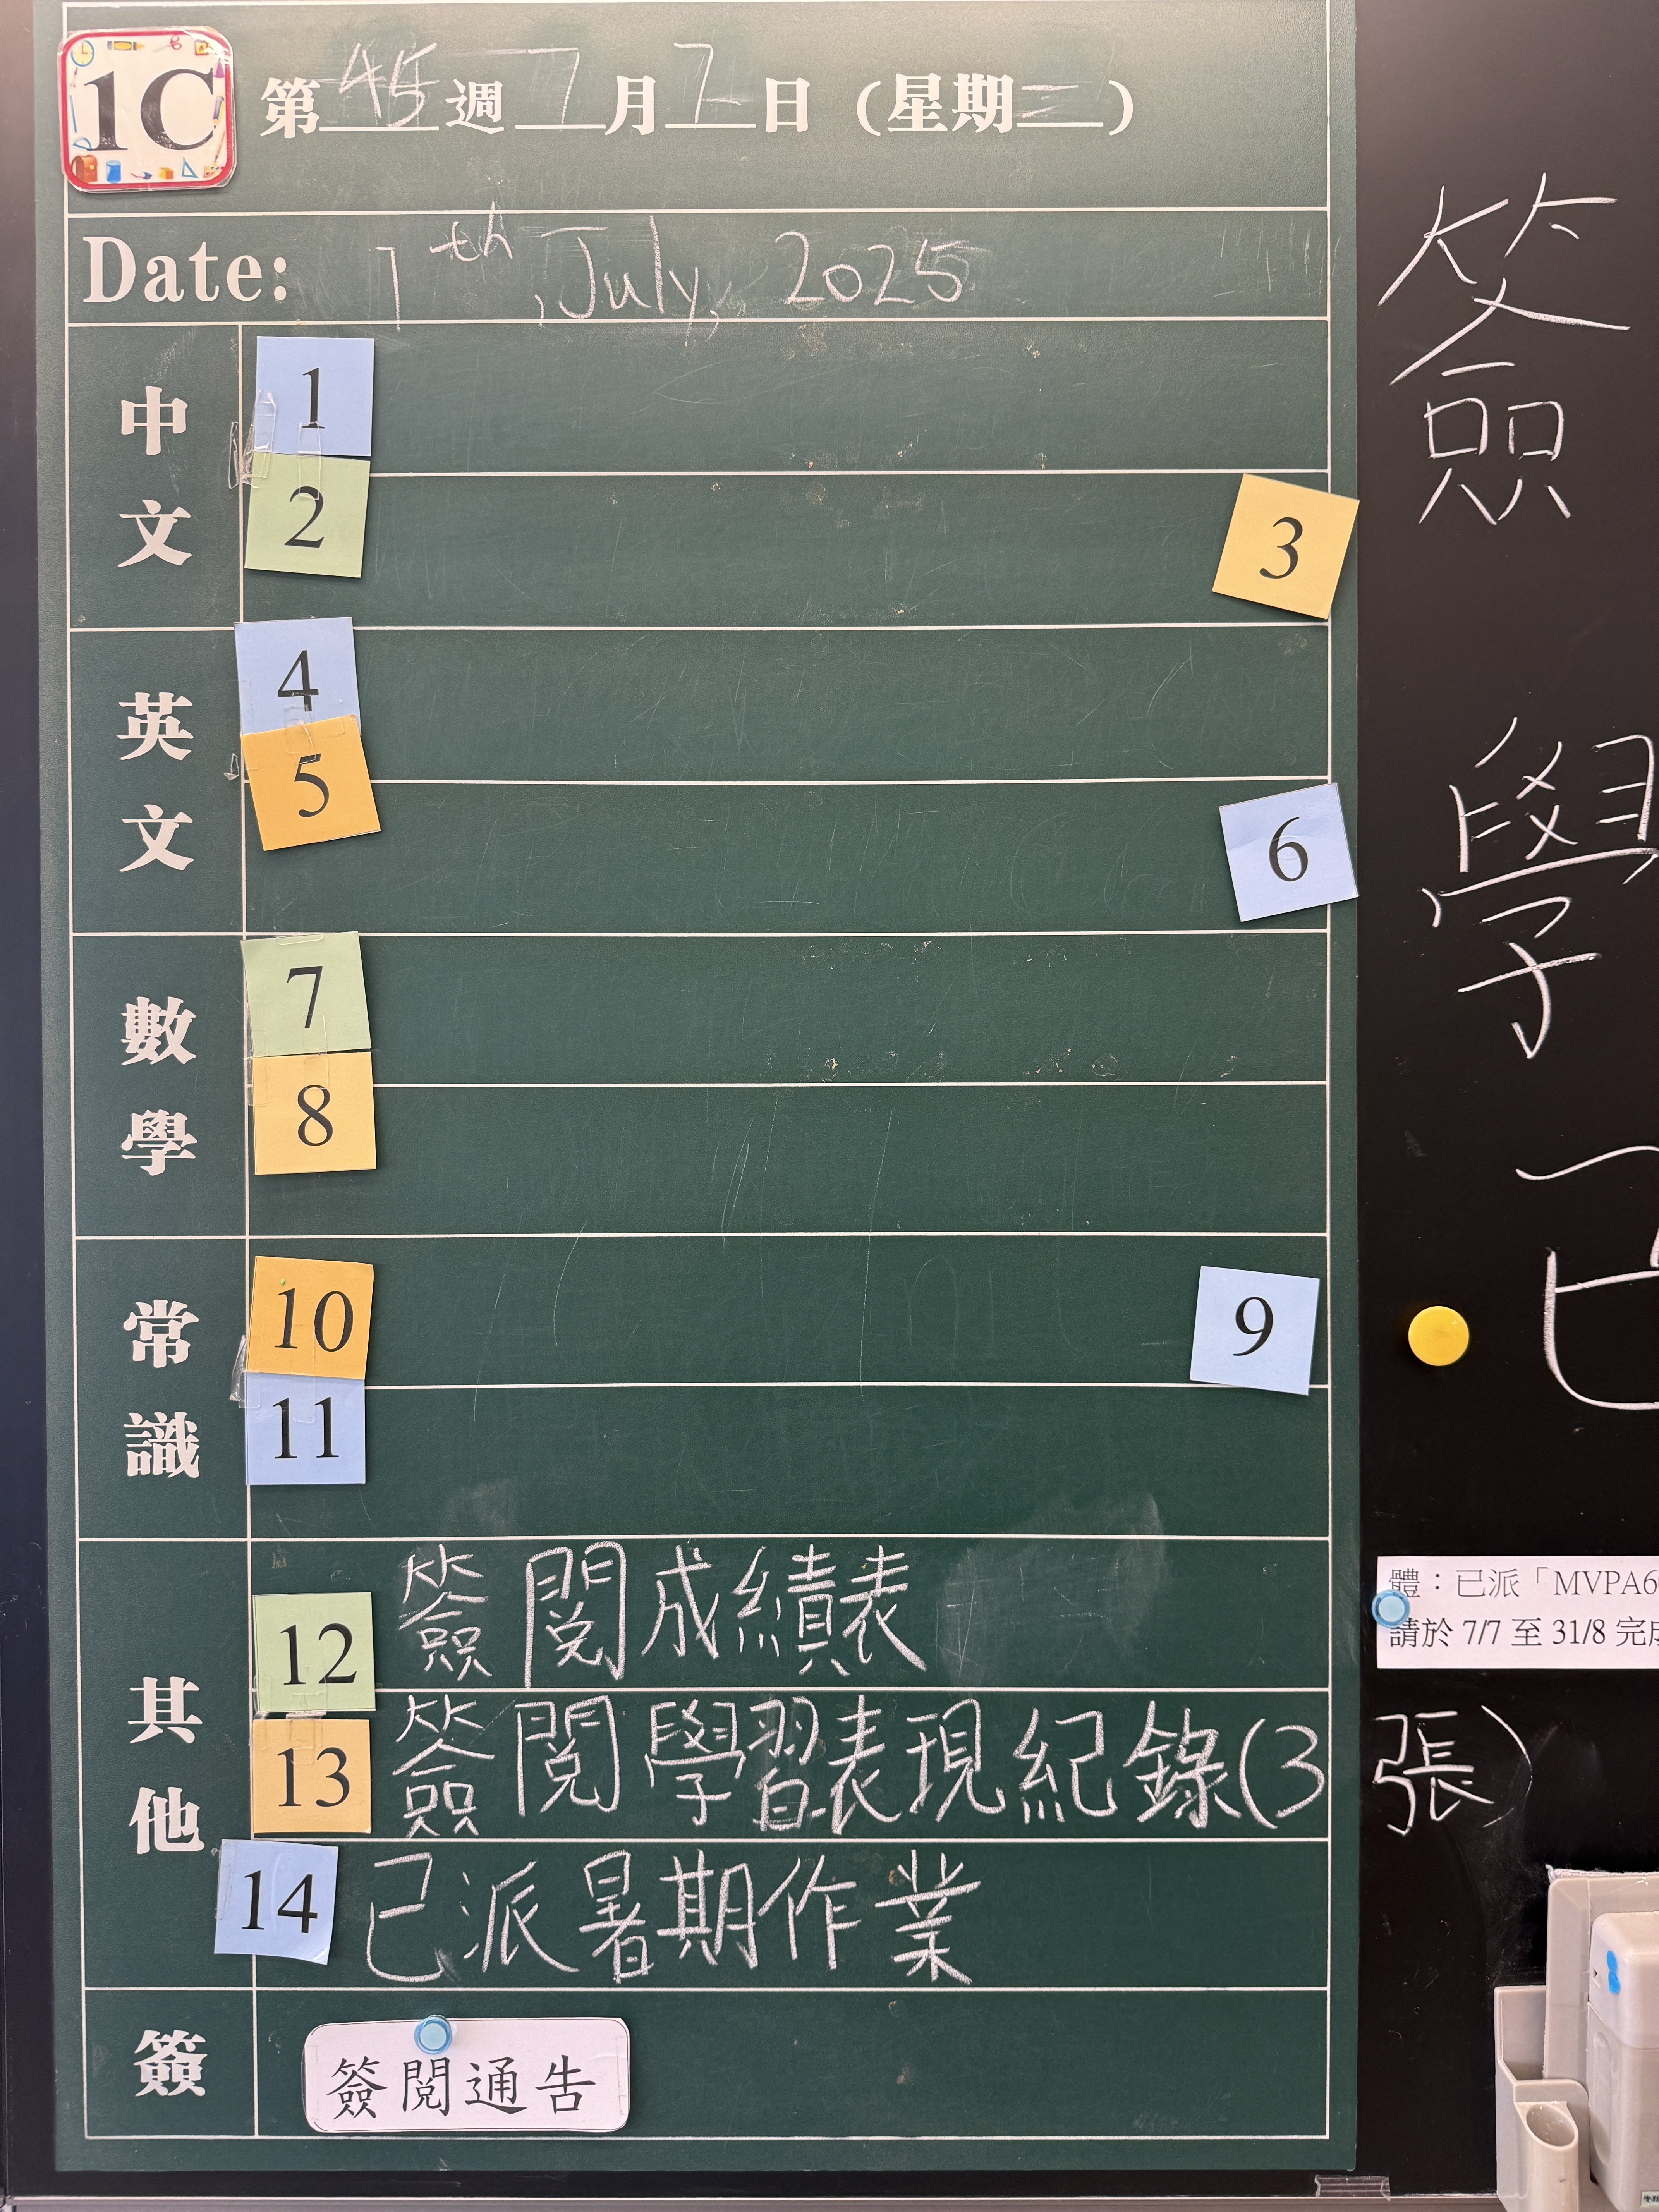 1C
第45週7月7日（星期二）
Date: 7th, July, 2025
中文
1
2
3
英文
4
5
6
數學
7
8
常識
10
9
11
其他
12 簽閱成績表
13 簽閱學習表現紀錄(3張)
14 已派暑期作業
簽
簽閱通告
簽
學
已
體：已派「MVPA6
請於 7/7 至 31/8 完成